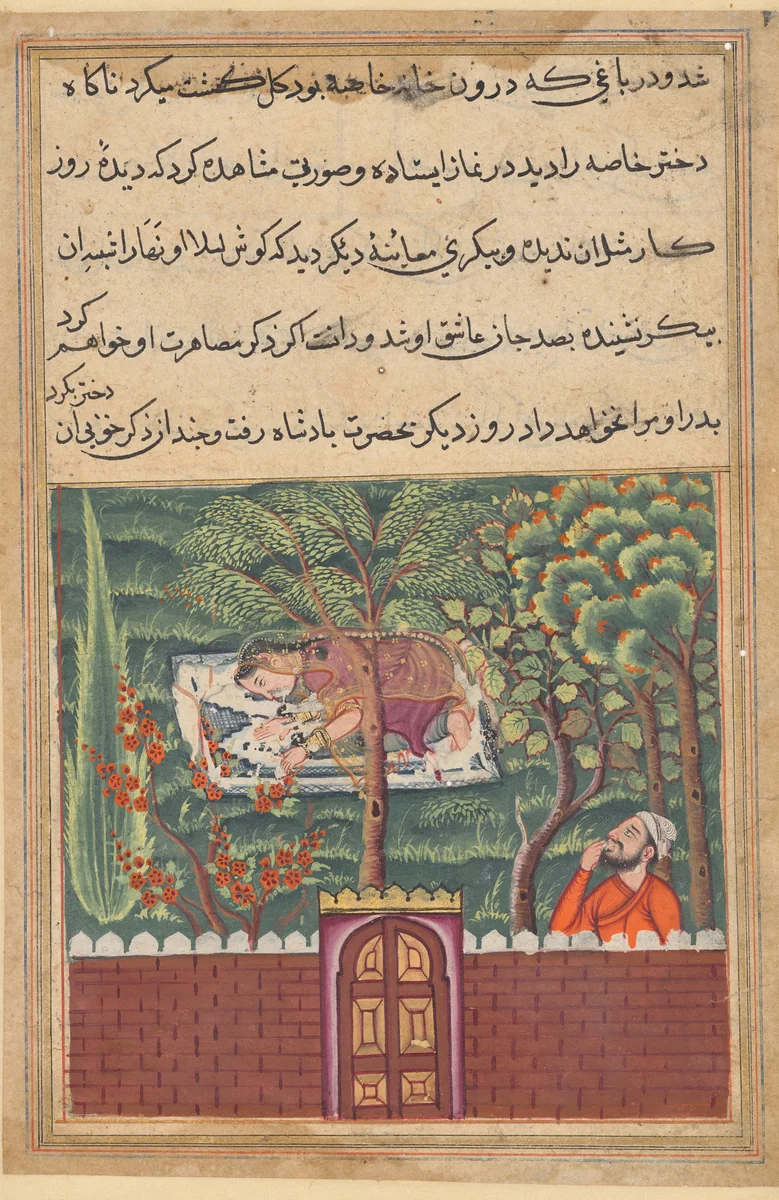 شد و در باغي که درون خانه خاصه بود کل کشت میکرد ناکاه
دختر خاصه را دید در نماز ایستاده و صورتي مشاهده کرد که دیدهٔ روز
کار مثل ان ندیده و پیکري معاینهٔ دیکر دید که کوش لیلا او نهارا شبه ان
پیکر نشینده بصد جان عاشق او شد و دانست اکر ذکر مصاهرت او خواهم کرد
پدر او مرا نخواهد داد روز دیکر بحضرت بادشاه رفت و چندان ذکر خوبي ان دختر بکرد